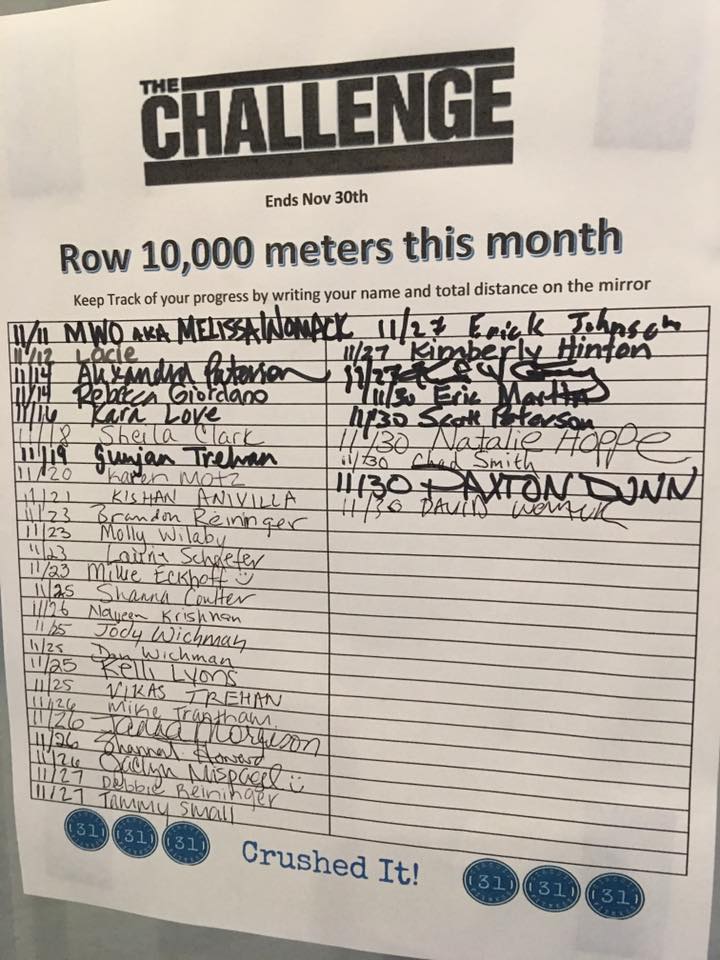 THE
CHALLENGE
Ends Nov 30th
Row 10,000 meters this month
Keep Track of your progress by writing your name and total distance on the mirror
11/11 MWO AKA MELISSA WOMACK
11/12 Lacie
11/14 Alexandra Paterson
11/14 Rebecca Giordano
11/16 Kara Love
11/18 Sheila Clark
11/19 Gunjan Trehan
11/20 Karen Motz
11/21 KISHAN ANIVILLA
11/23 Brandon Reininger
11/23 Molly Wilaby
11/23 Laura Schaefer
11/23 Millie Eckhoff
11/25 Shanna Coulter
11/26 Naveen Krishnan
11/25 Jody Wichman
11/25 Dan Wichman
11/25 Kelli Lyons
11/25 VIKAS TREHAN
11/26 Mike Trantham
11/26
11/26 Howard
11/26 Jaclyn Mispagel
11/27 Debbie Reininger
11/27 Tammy Small
11/27 Erick Johnson
11/27 Kimberly Hinton
11/27
11/30 Eric Martin
11/30 Scott Paterson
11/30 Natalie Hoppe
11/30 Chad Smith
11/30 PAXTON DUNN
11/30 DAVID WOMACK
31 31 31
Crushed It!
31 31 31